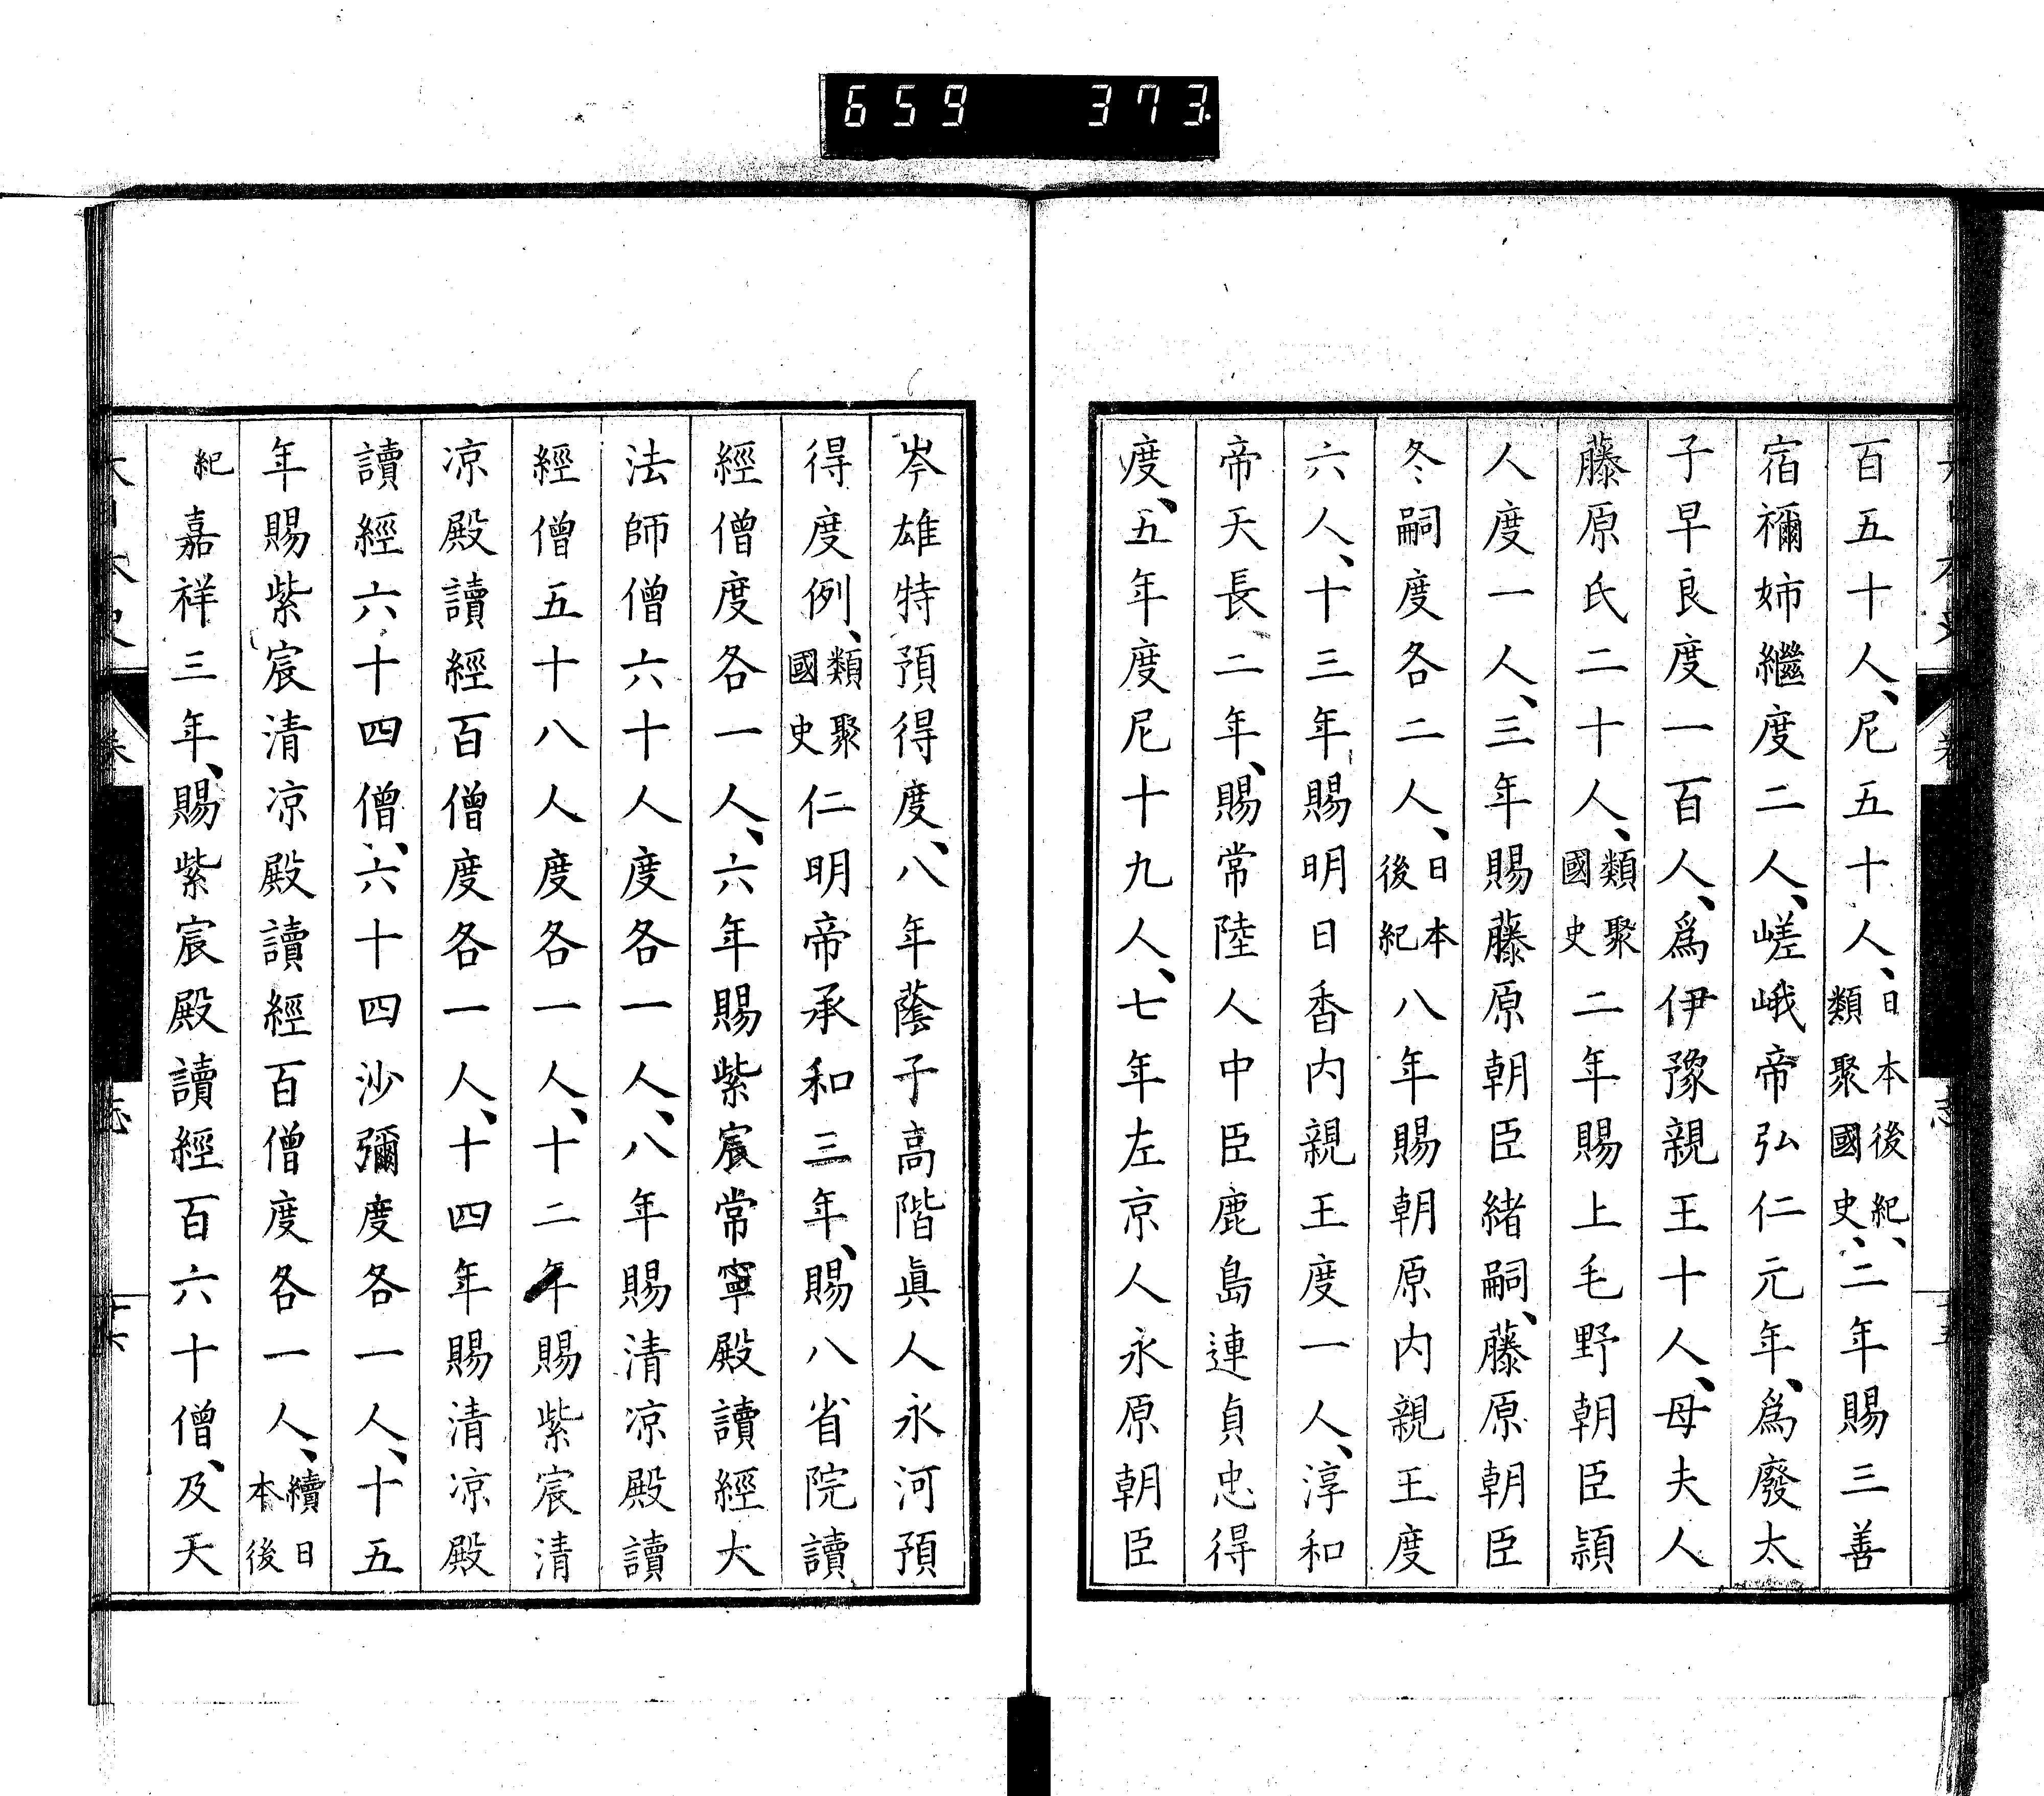 659 373
百五十人、尼五十人、日本後紀、類聚國史、二年賜三善
宿禰姉繼度二人、嵯峨帝弘仁元年、爲廢太
子早良度一百人、爲伊豫親王十人、母夫人
藤原氏二十人、類聚國史二年賜上毛野朝臣頴
人度一人、三年賜藤原朝臣緒嗣、藤原朝臣
冬嗣度各二人、日本後紀八年賜朝原内親王度
六人、十三年賜明日香内親王度一人、淳和
帝天長二年、賜常陸人中臣鹿島連貞忠得
度、五年度尼十九人、七年左京人永原朝臣
岑雄特預得度、八年蔭子高階眞人永河預
得度例、類聚國史仁明帝承和三年、賜八省院讀
經僧度各一人、六年賜紫宸常寧殿讀經大
法師僧六十人度各一人、八年賜清凉殿讀
經僧五十八人度各一人、十二年賜紫宸清
凉殿讀經百僧度各一人、十四年賜清凉殿
讀經六十四僧、六十四沙彌度各一人、十五
年賜紫宸清凉殿讀經百僧度各一人、續日本後
紀嘉祥三年、賜紫宸殿讀經百六十僧、及天